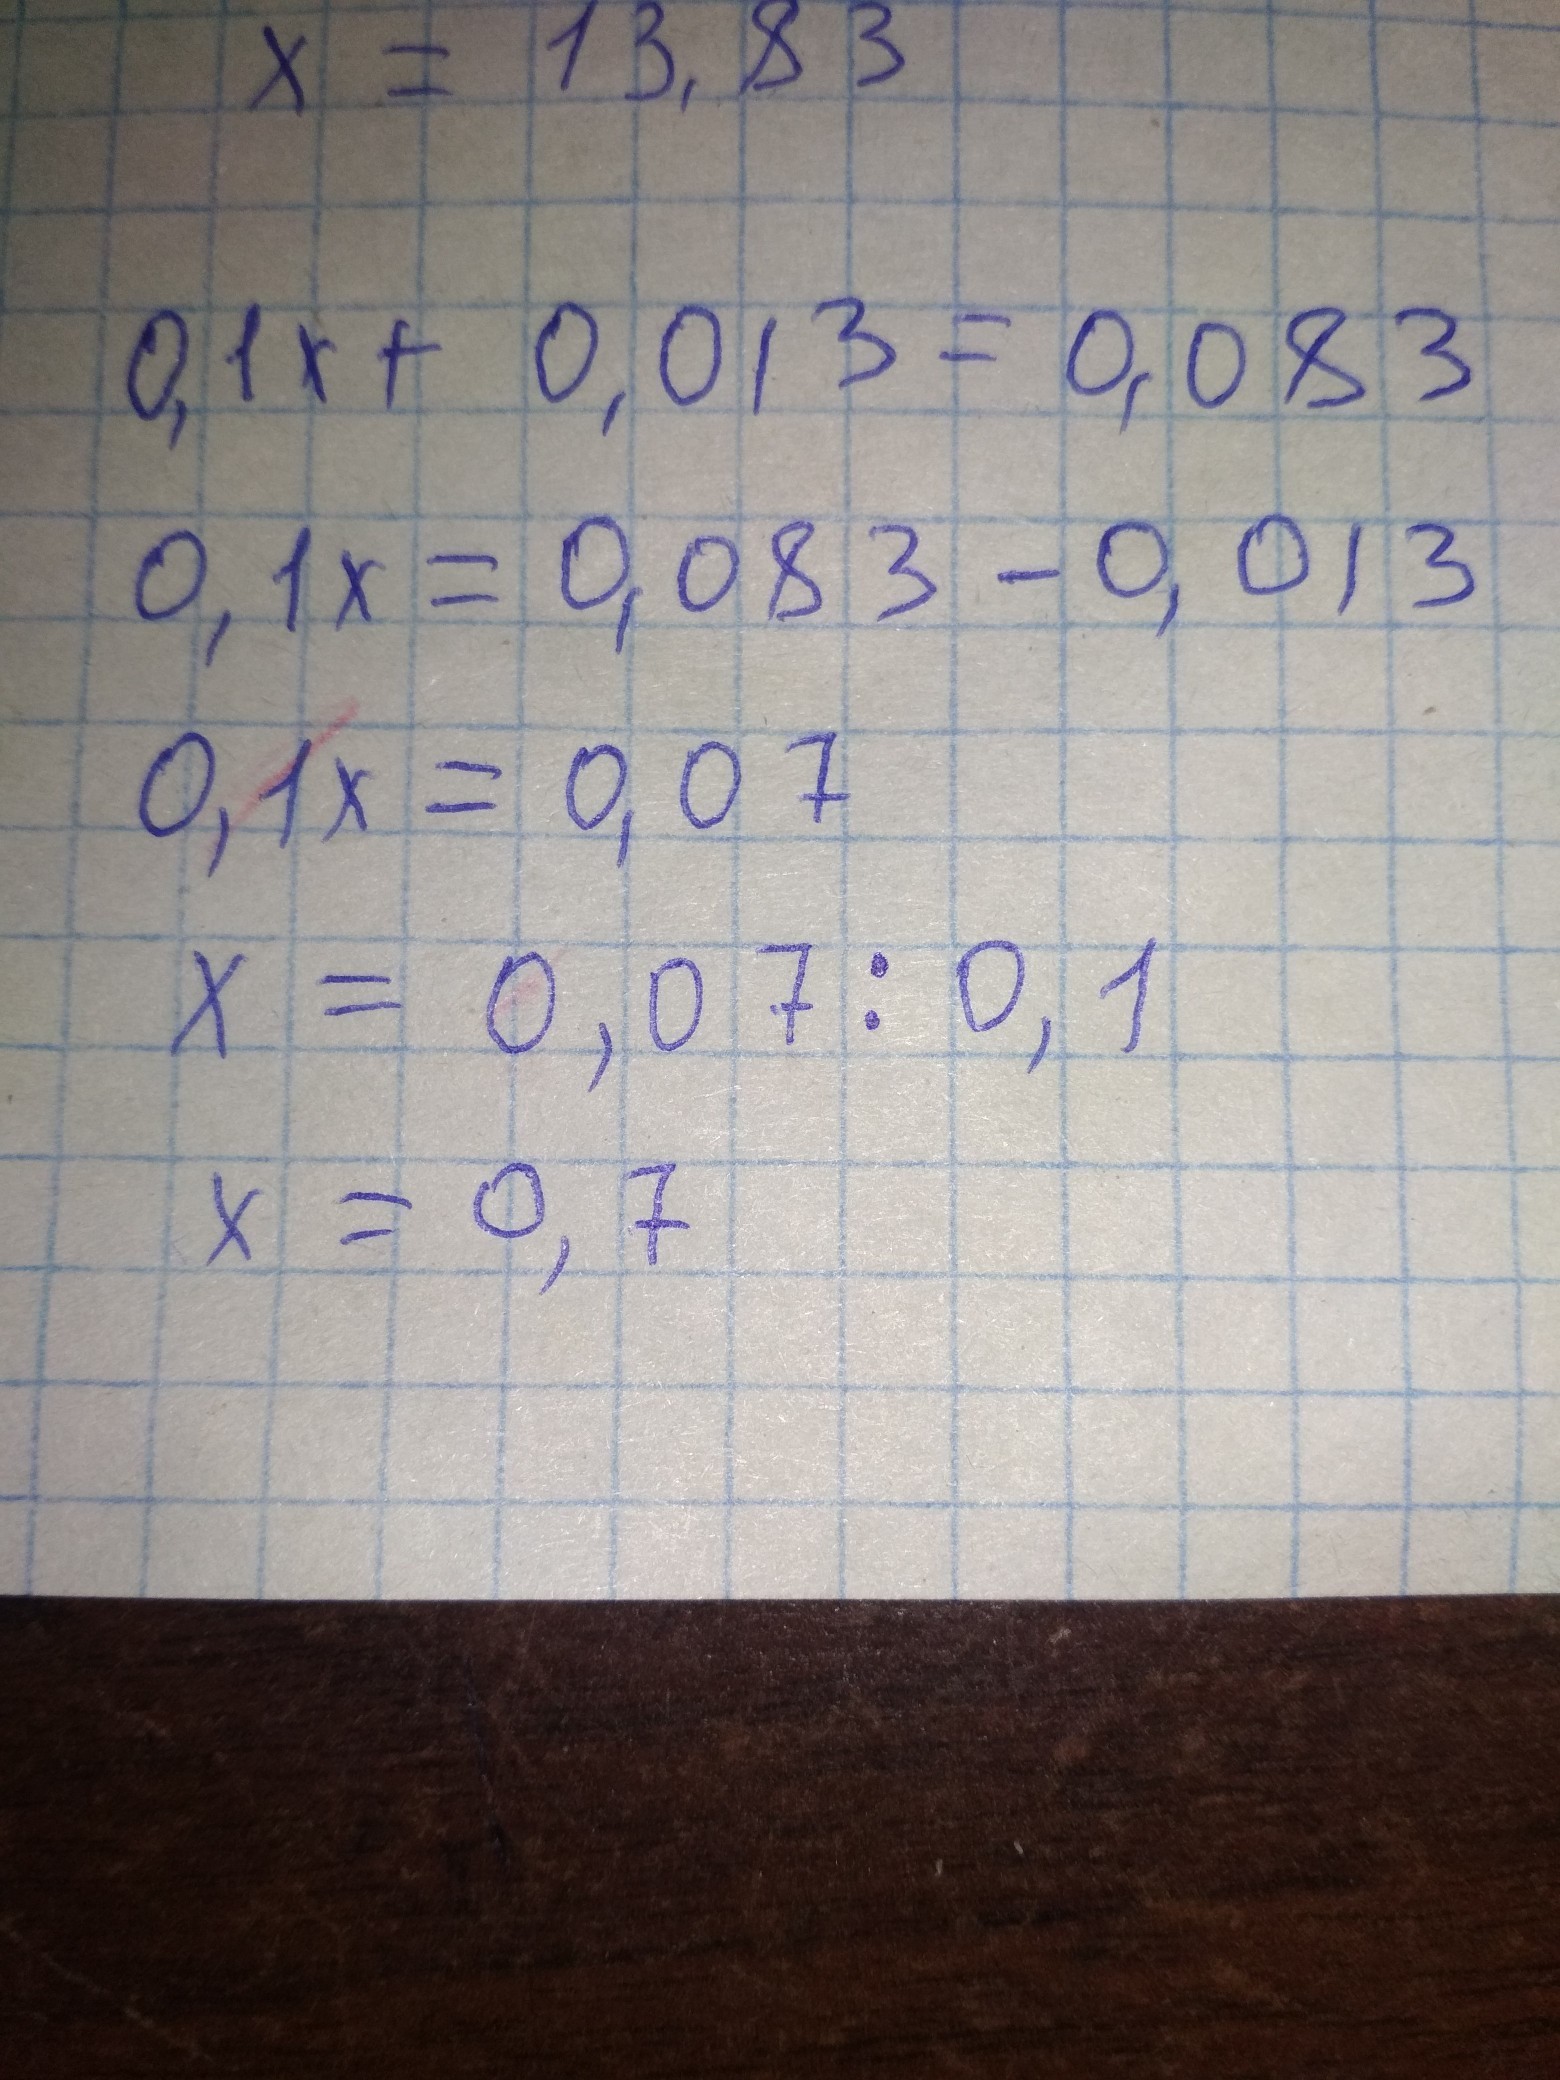 x = 13,83
0,1x + 0,013 = 0,083
0,1x = 0,083 - 0,013
0,1x = 0,07
x = 0,07 : 0,1
x = 0,7